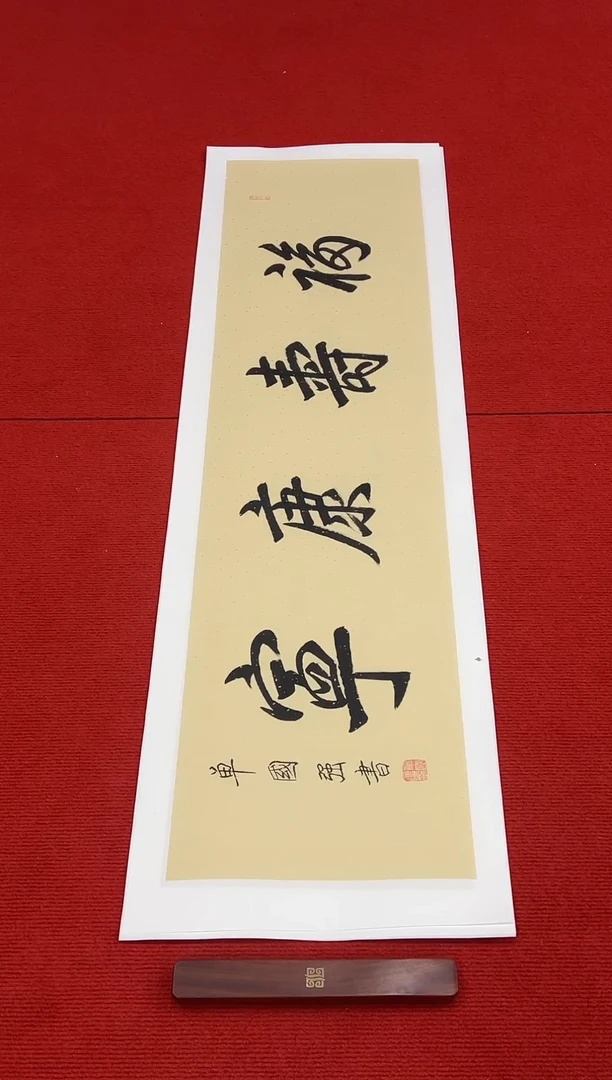 福壽康寧
單國强書